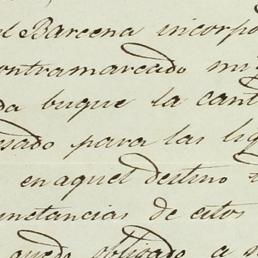 l Barcena incorpo
contramarcado mi
da buque la cant
sado para las lig
en aquel destino
unstancias de estos
quedo obligado a